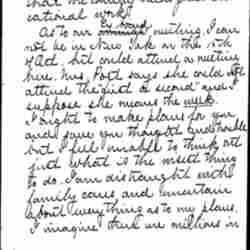 that we
cational work.
As to our board meeting, I can
not be in New York on the 15th
of Oct, but could attend a meeting
here. Mrs. Post says she could not
attend the first or second and I
suppose she means the week.
I ought to make plans for you
and save you thought and trouble
but I feel unable to think out
just what is the wisest thing
to do. I am distraught with
family cares and uncertain
about everything as to my plans.
I imagine there are millions in